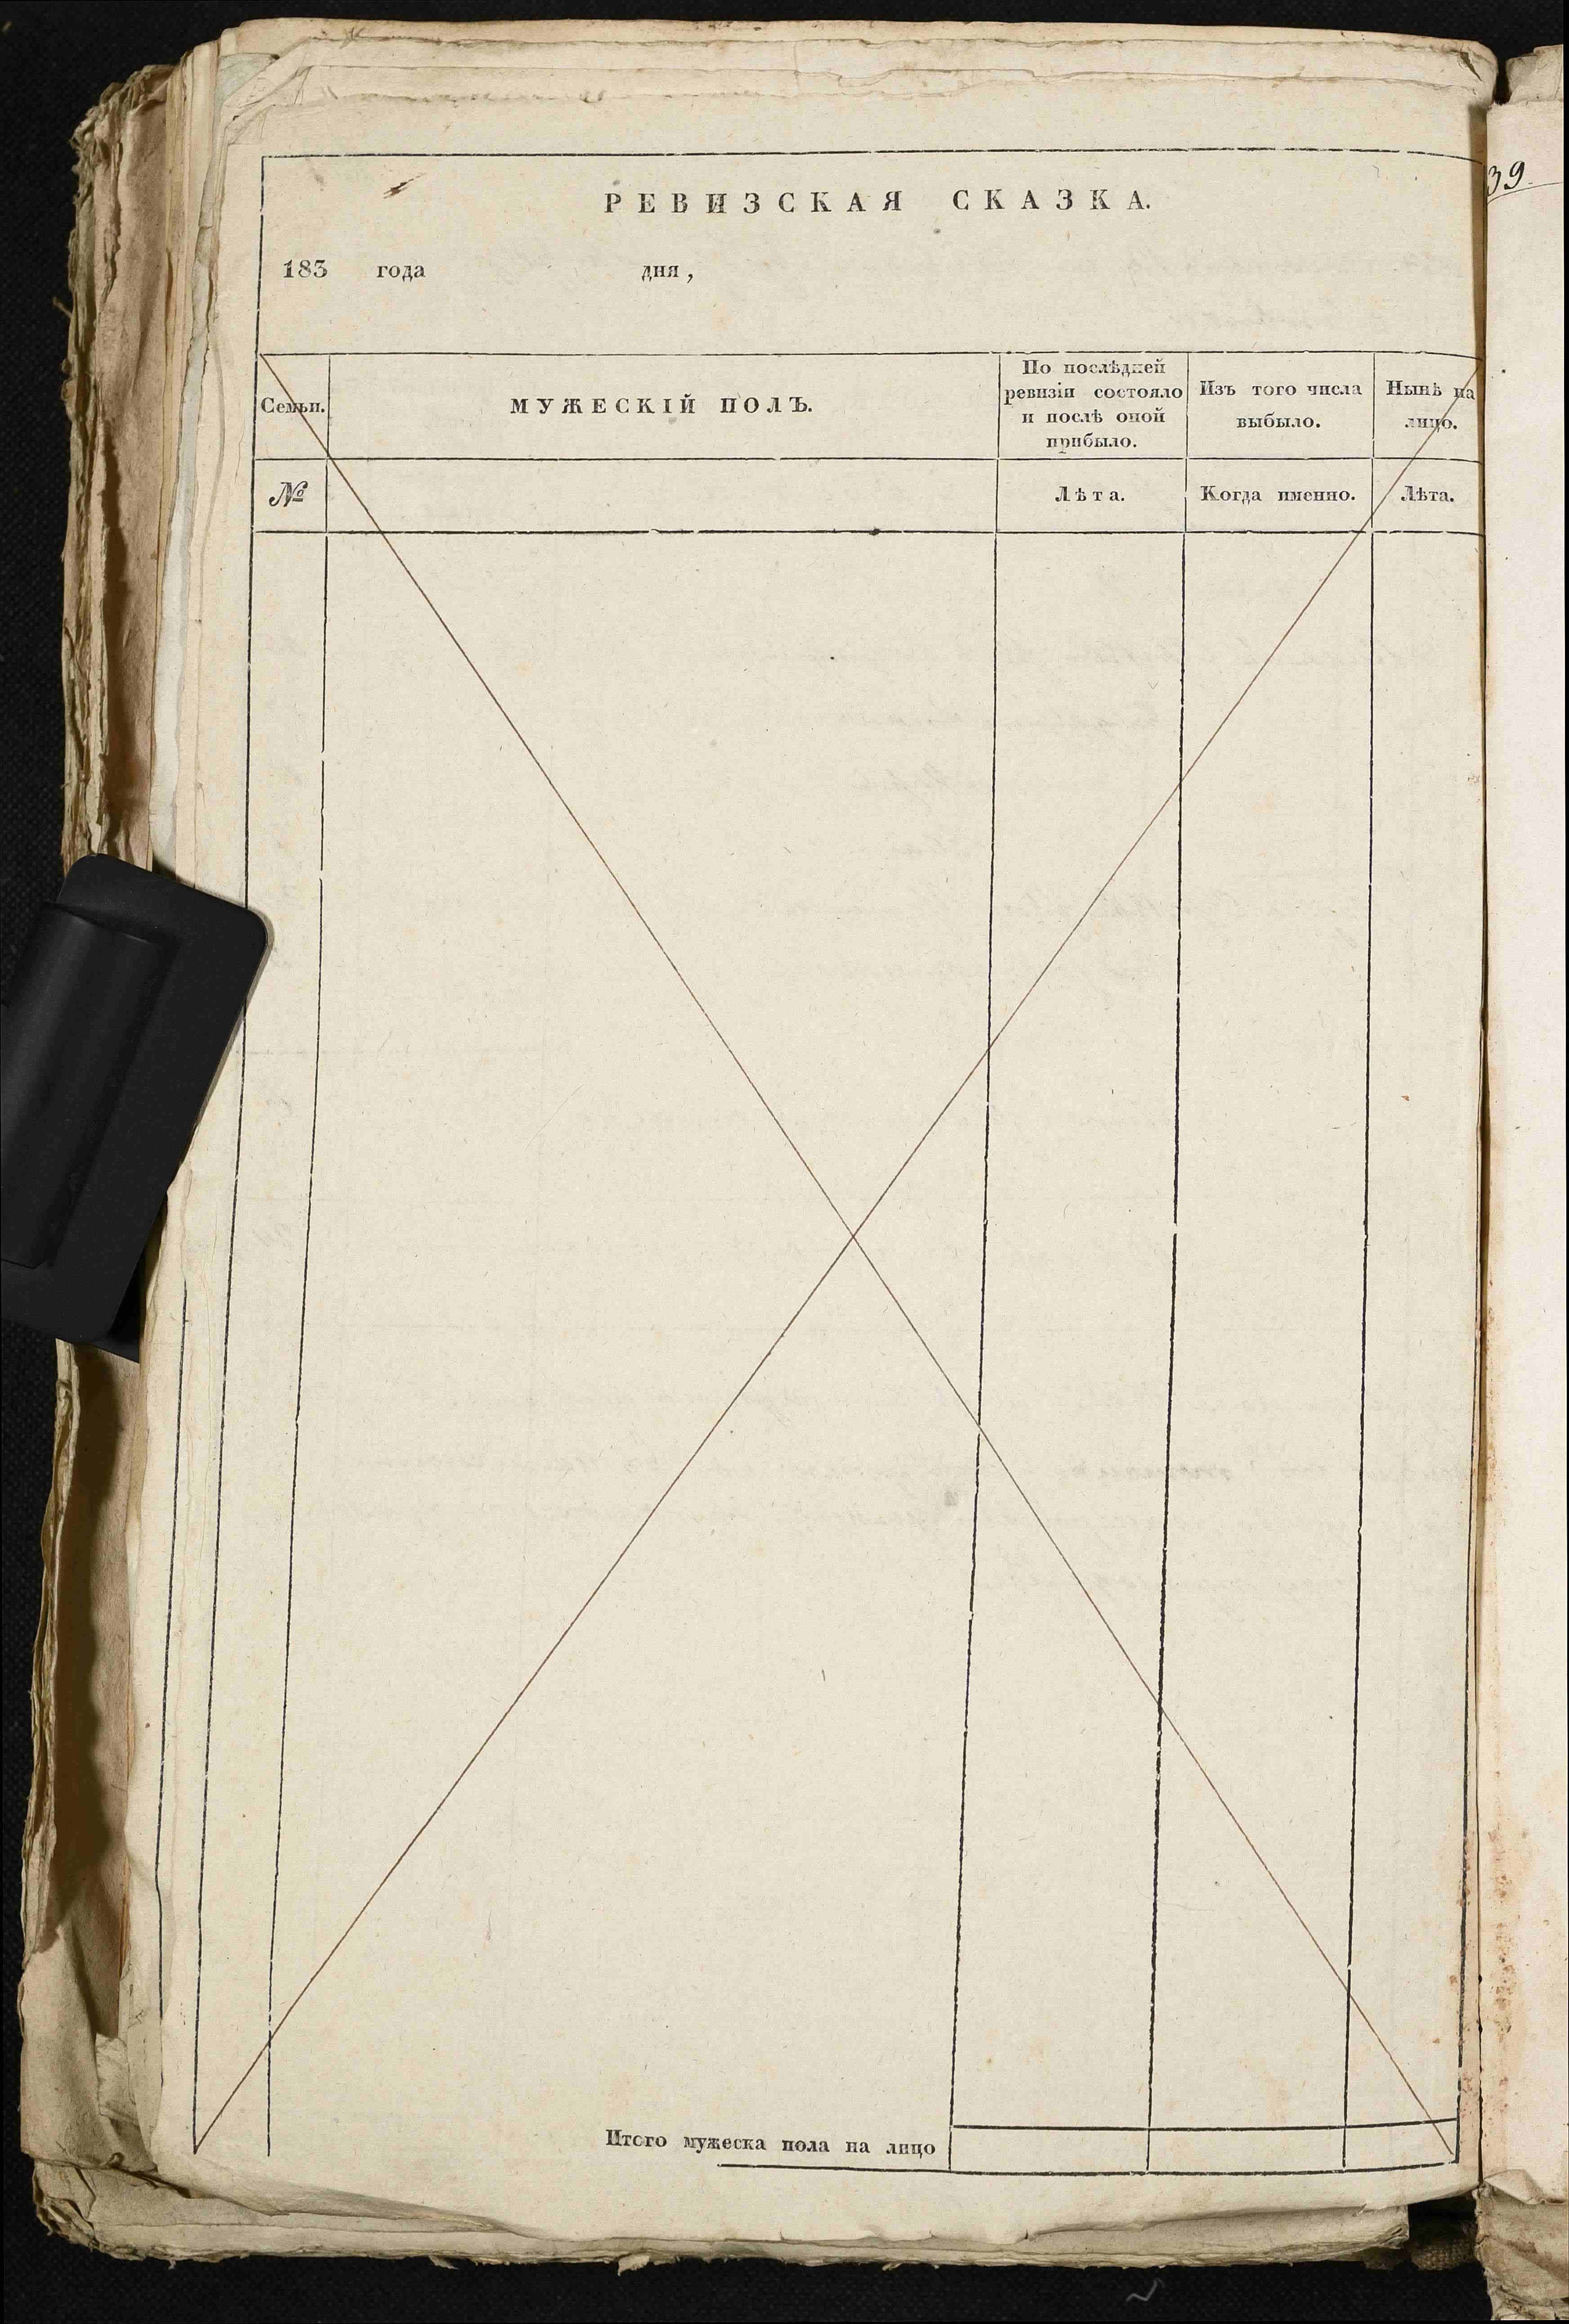 РЕВИЗСКАЯ СКАЗКА.
183 года дня,
Семьи.
МУЖЕСКІЙ ПОЛЪ.
По послѣдней
ревизіи состояло
и послѣ оной
прибыло.
Изъ того числа
выбыло.
Нынѣ на
лицо.
№
Лѣта.
Когда именно.
Лѣта.
Итого мужеска пола на лицо
39